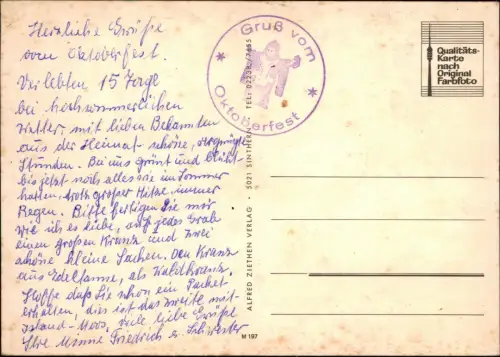 Herzliche Grüße
vom Oktoberfest.
Verlebten 15 Tage
bei hochsommerlichen
Wetter mit lieben Bekannten
aus der Heimat schöne, vergnügte
Stunden. Bei uns grünt und blüht
bis jetzt noch alles wie im Sommer
hatten, trotz großer Hitze immer
Regen. Bitte fertigen Sie mir
wie ich es liebe, auf jedes Grab
einen großen Kranz und zwei
schöne kleine Sachen. Den Kranz
aus Edeltanne, als Waldkranz.
Hoffe daß Sie schon ein Packet
erhalten, dies ist das zweite mit
Moos, viele liebe Grüße
Ihre Minna Friedrich u. Schwester
Gruß vom
Oktoberfest
ALFRED ZIETHEN VERLAG · 5021 SINTHERN · TEL: 02238/7655
M 197
Qualitäts-
Karte
nach
Original
Farbfoto